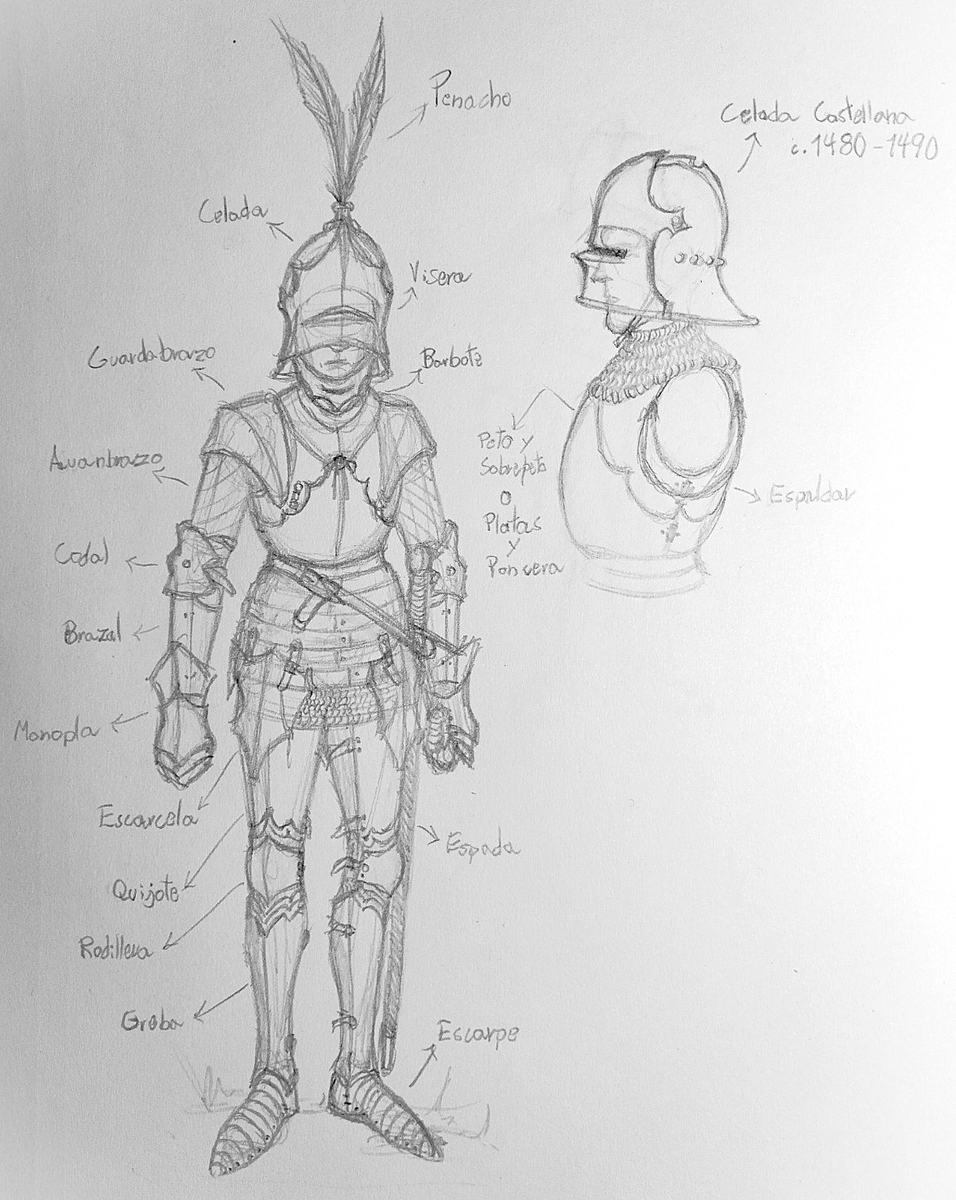 Penacho
Celada Castellana
c.1480-1490
Celada
Visera
Guardabrazo
Barbote
Avanbrazo
Peto y
Sobrepeto
o
Platas
y
Poncera
Espaldar
Codal
Brazal
Manopla
Escarcela
Espada
Quijote
Rodillera
Greba
Escarpe